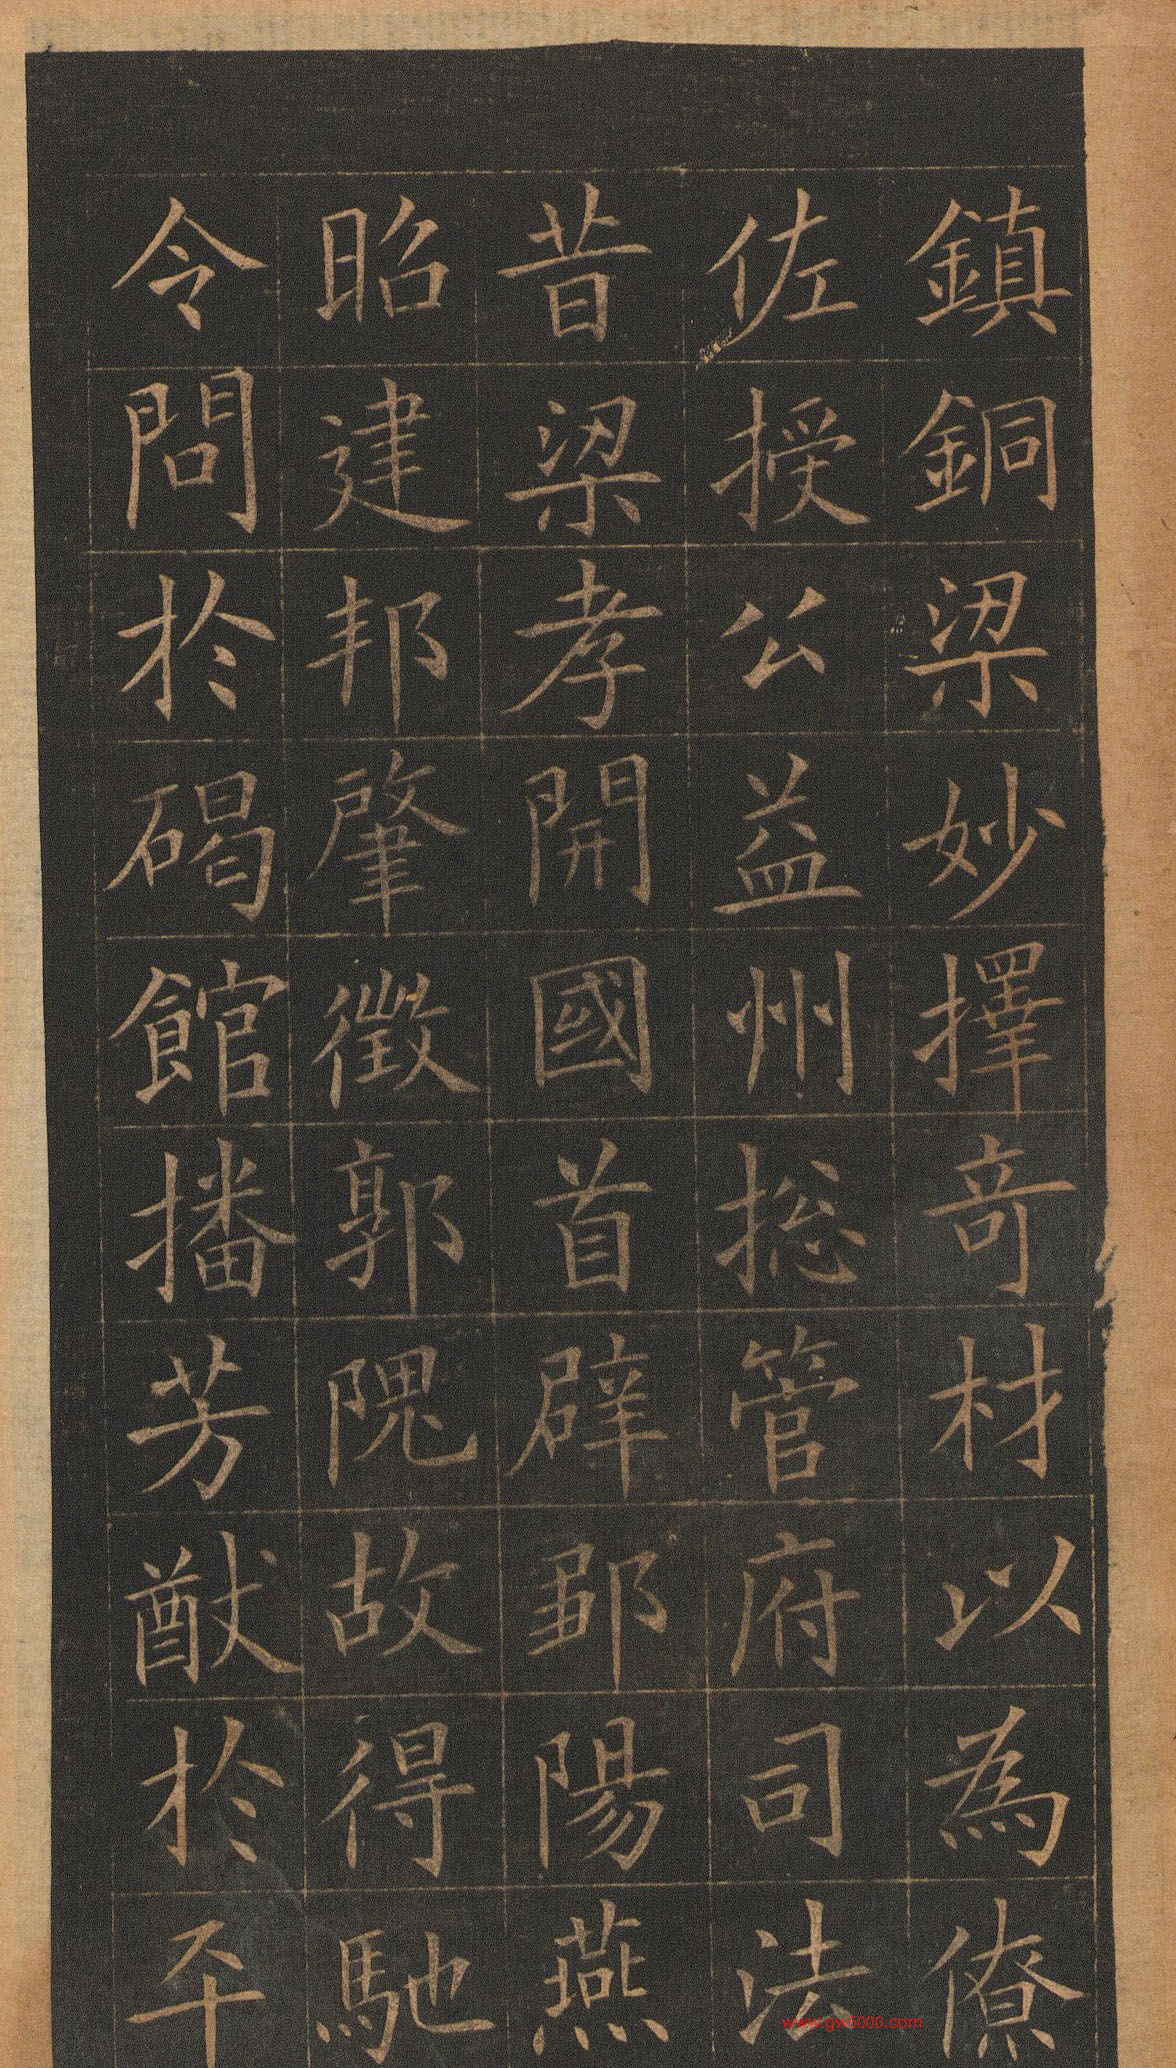 鎮銅梁妙擇奇材以為僚
佐授公益州揔管府司法
昔梁孝開國首辟鄒陽燕
昭建邦肇徵郭隗故得馳
令問於碣館播芳猷於平
www.gw5000.com